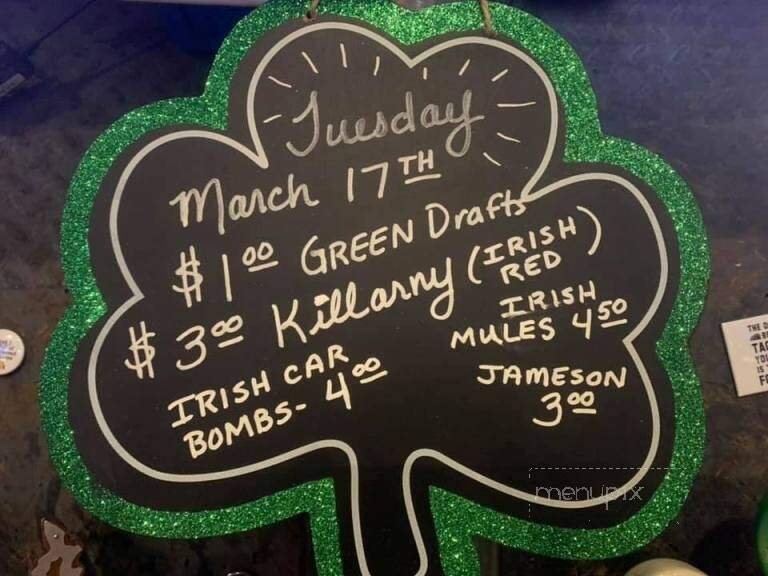 Tuesday
March 17TH
$1.00 GREEN Drafts
$3.00 Killarny (IRISH RED)
IRISH CAR
BOMBS- 4.00
IRISH
MULES 4.50
JAMESON
3.00
menupix